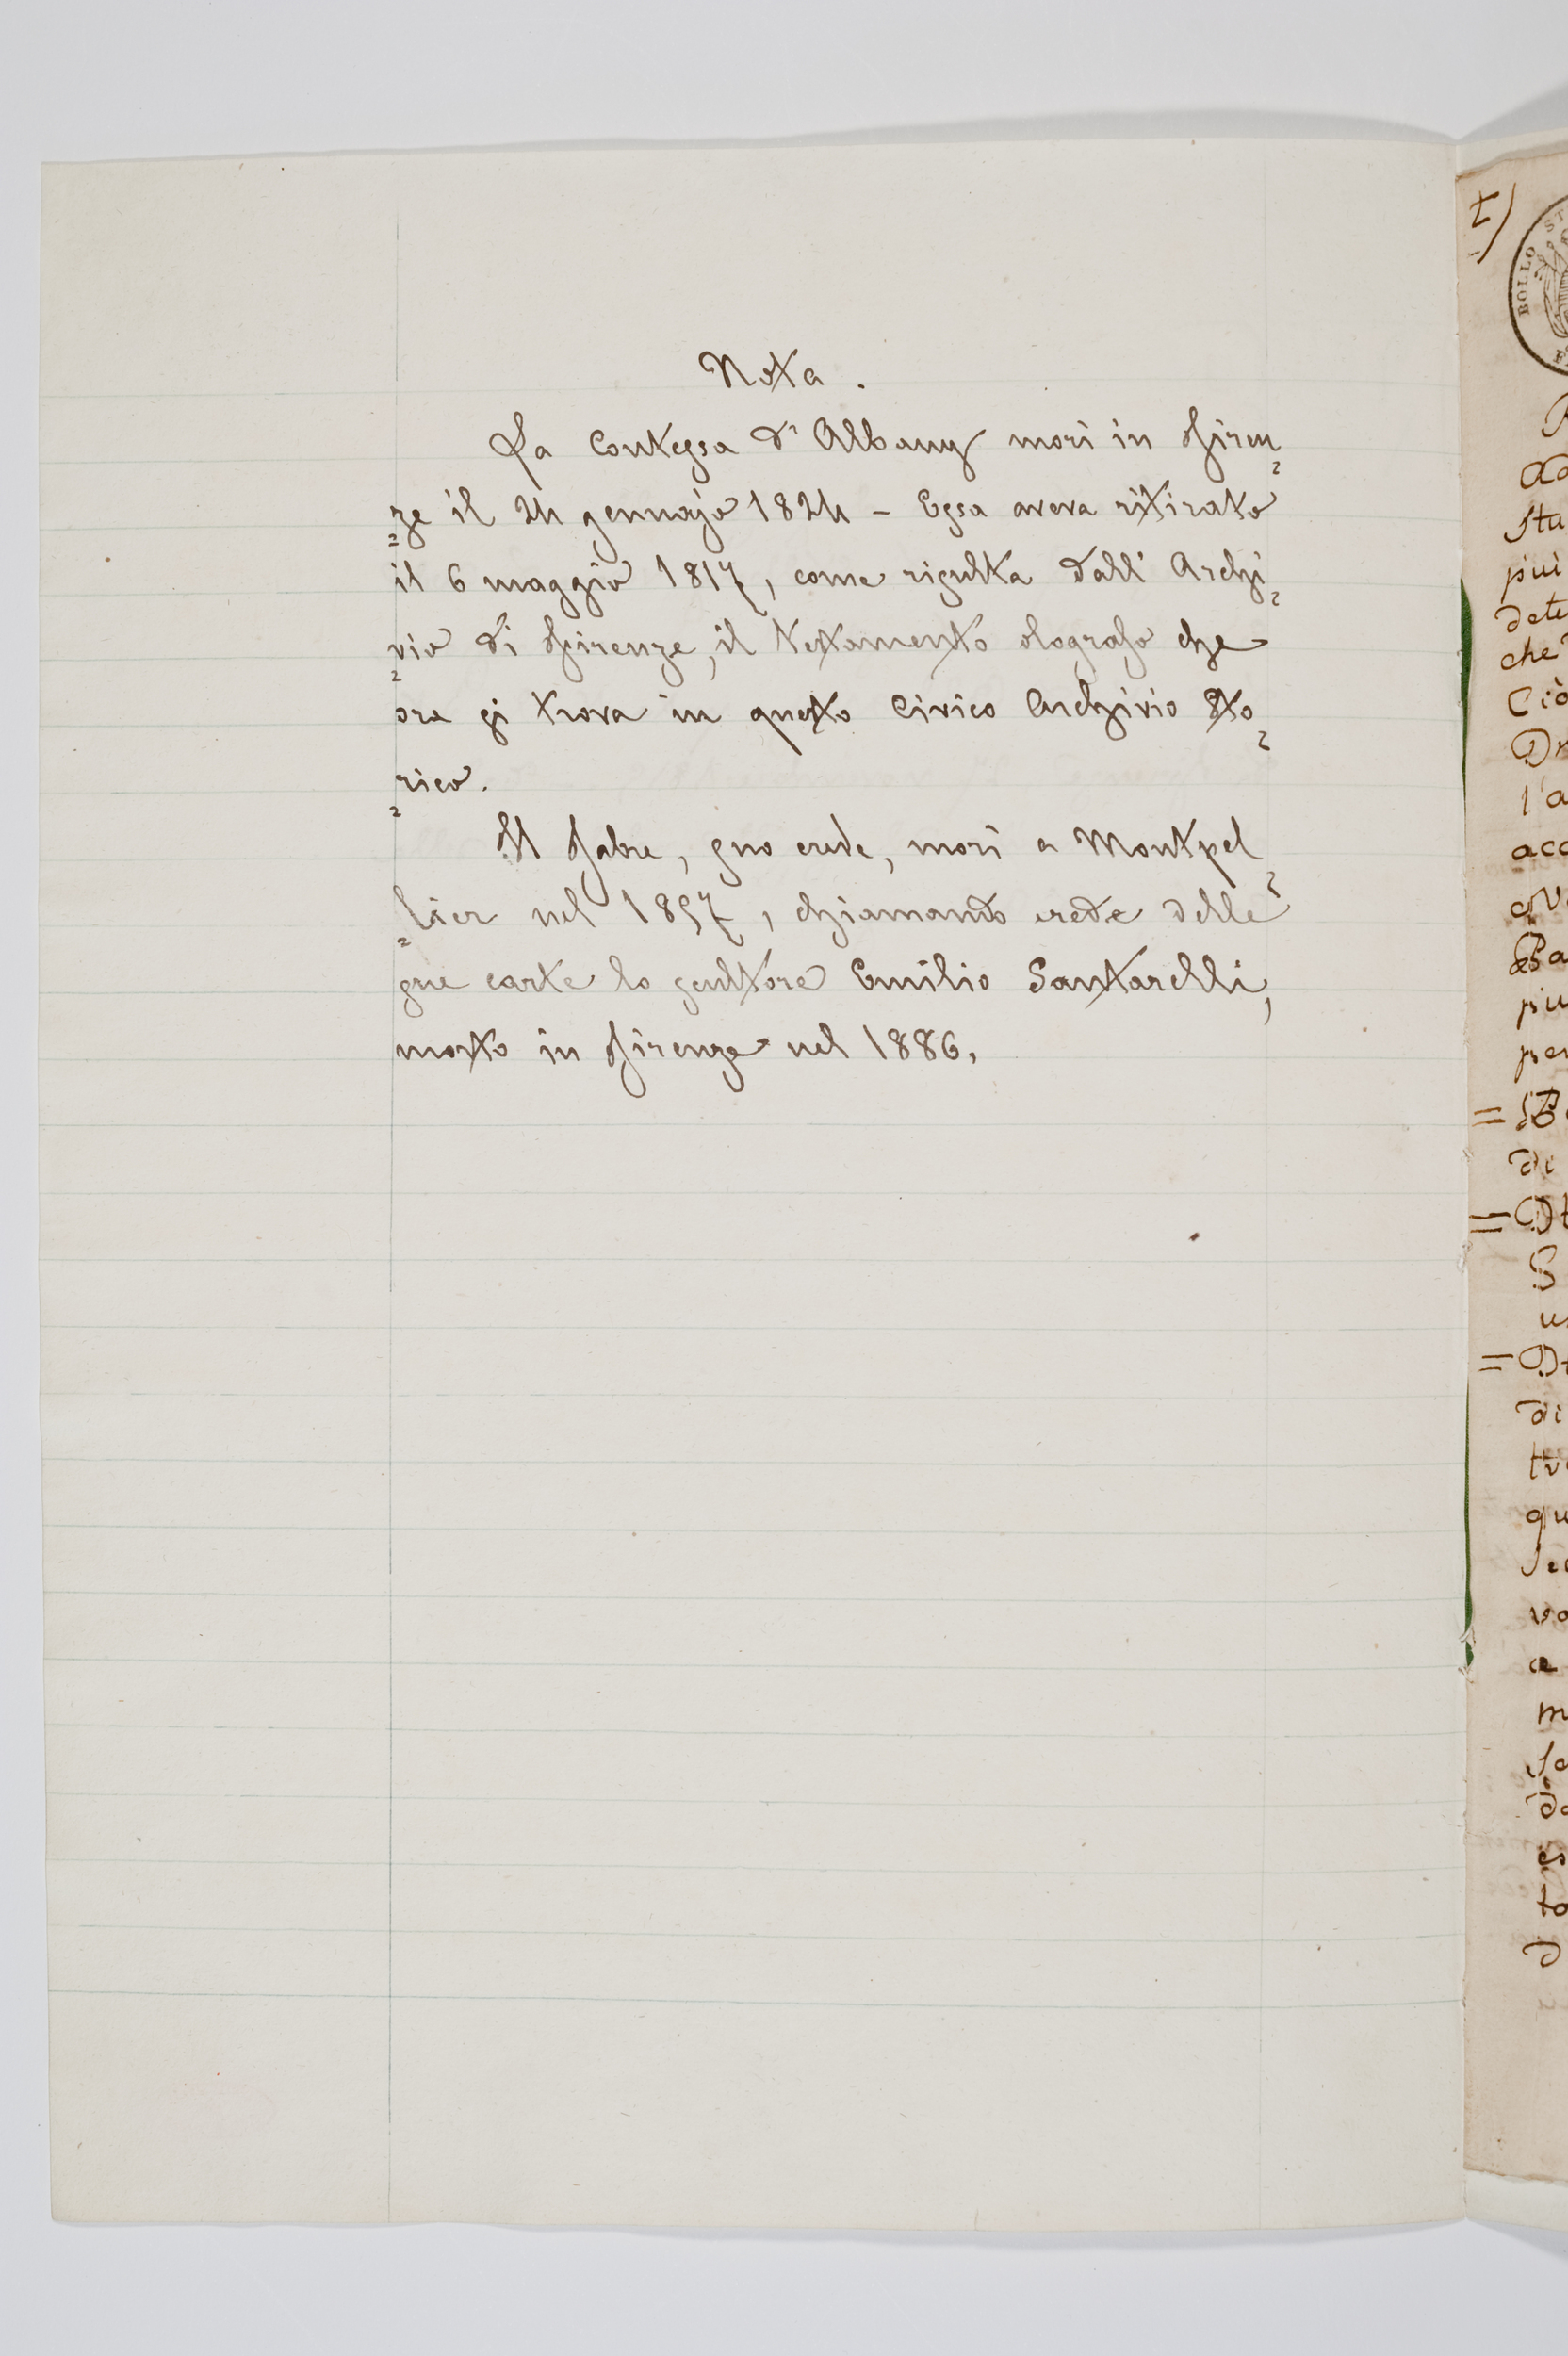 Nota.
La Contessa d'Albany morì in Firen=
=ze il 24 gennajo 1824 - Essa aveva ritirato
il 6 maggio 1817, come risulta dall'Archi=
=vio di Firenze, il testamento olografo che
ora si trova in questo Civico Archivio Sto=
=rico.
Il Fabre, suo erede, morì a Montpel=
=lier nel 1837, chiamando erede delle
sue carte lo scultore Emilio Santarelli,
morto in Firenze nel 1886.
t)
BOLLO ST
Stu
piu
dete
che
Ciò
l'a
acc
piu
per
di
=
S
di
qu
vo
a
m
es
to